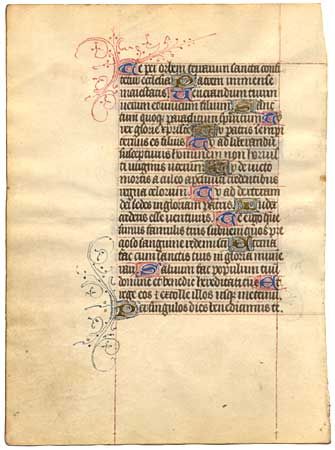 Te per orbem terrarum sancta confi
tetur ecclesia Patrem immense
maiestatis Uenerandum tuum
uerum et unicum filium Sanc
tum quoque paraclitum spiritum Tu
rex glorie xpriste Tu patris sempi
ternus es filius Tu ad liberandu
suscepturus hominem non horrui
sti uirginis uterum Tu deuicto
mortis aculeo aperuisti credentibus
regna celorum Tu ad dexteram
dei sedes in gloriam patris Iudex
crederis esse uenturus Te ergo que
sumus famulis tuis subueni quos pre
cioso sanguine redemisti Eterna
fac cum sanctis tuis in gloria mune
rari Saluum fac populum tuu
domine et benedic hereditati tue Et
rege eos et extolle illos usque in eternu
Per singulos dies benedicimus te